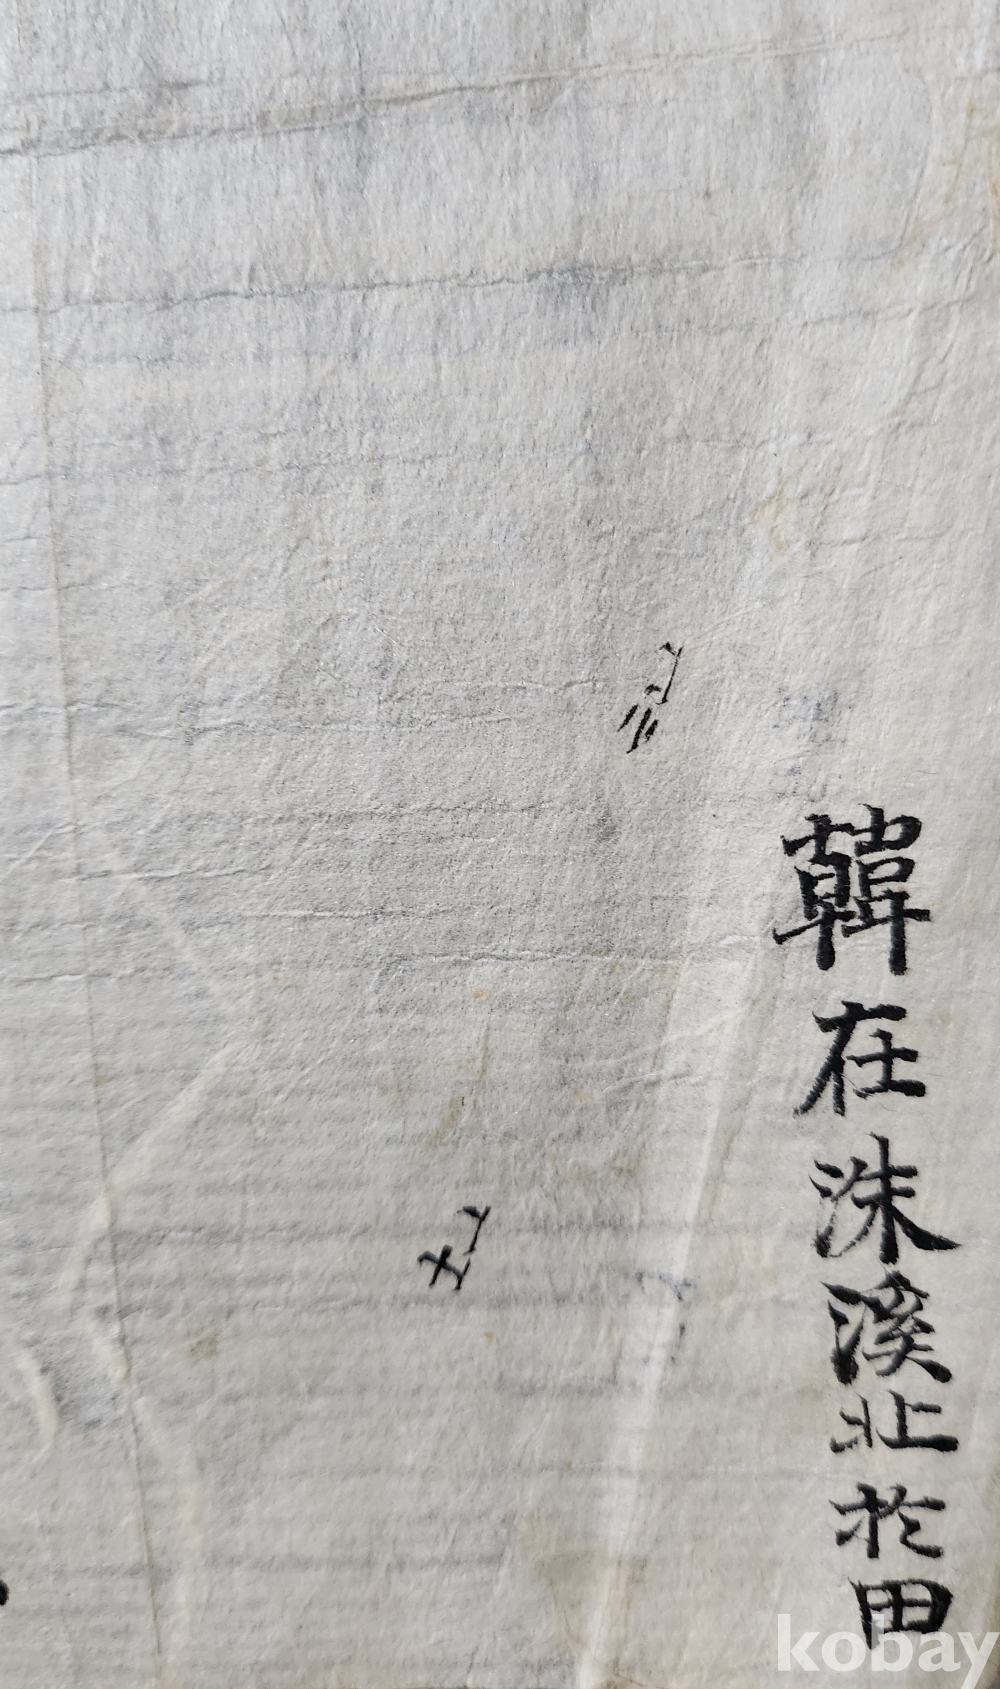 韓在洙溪北於田
kobay